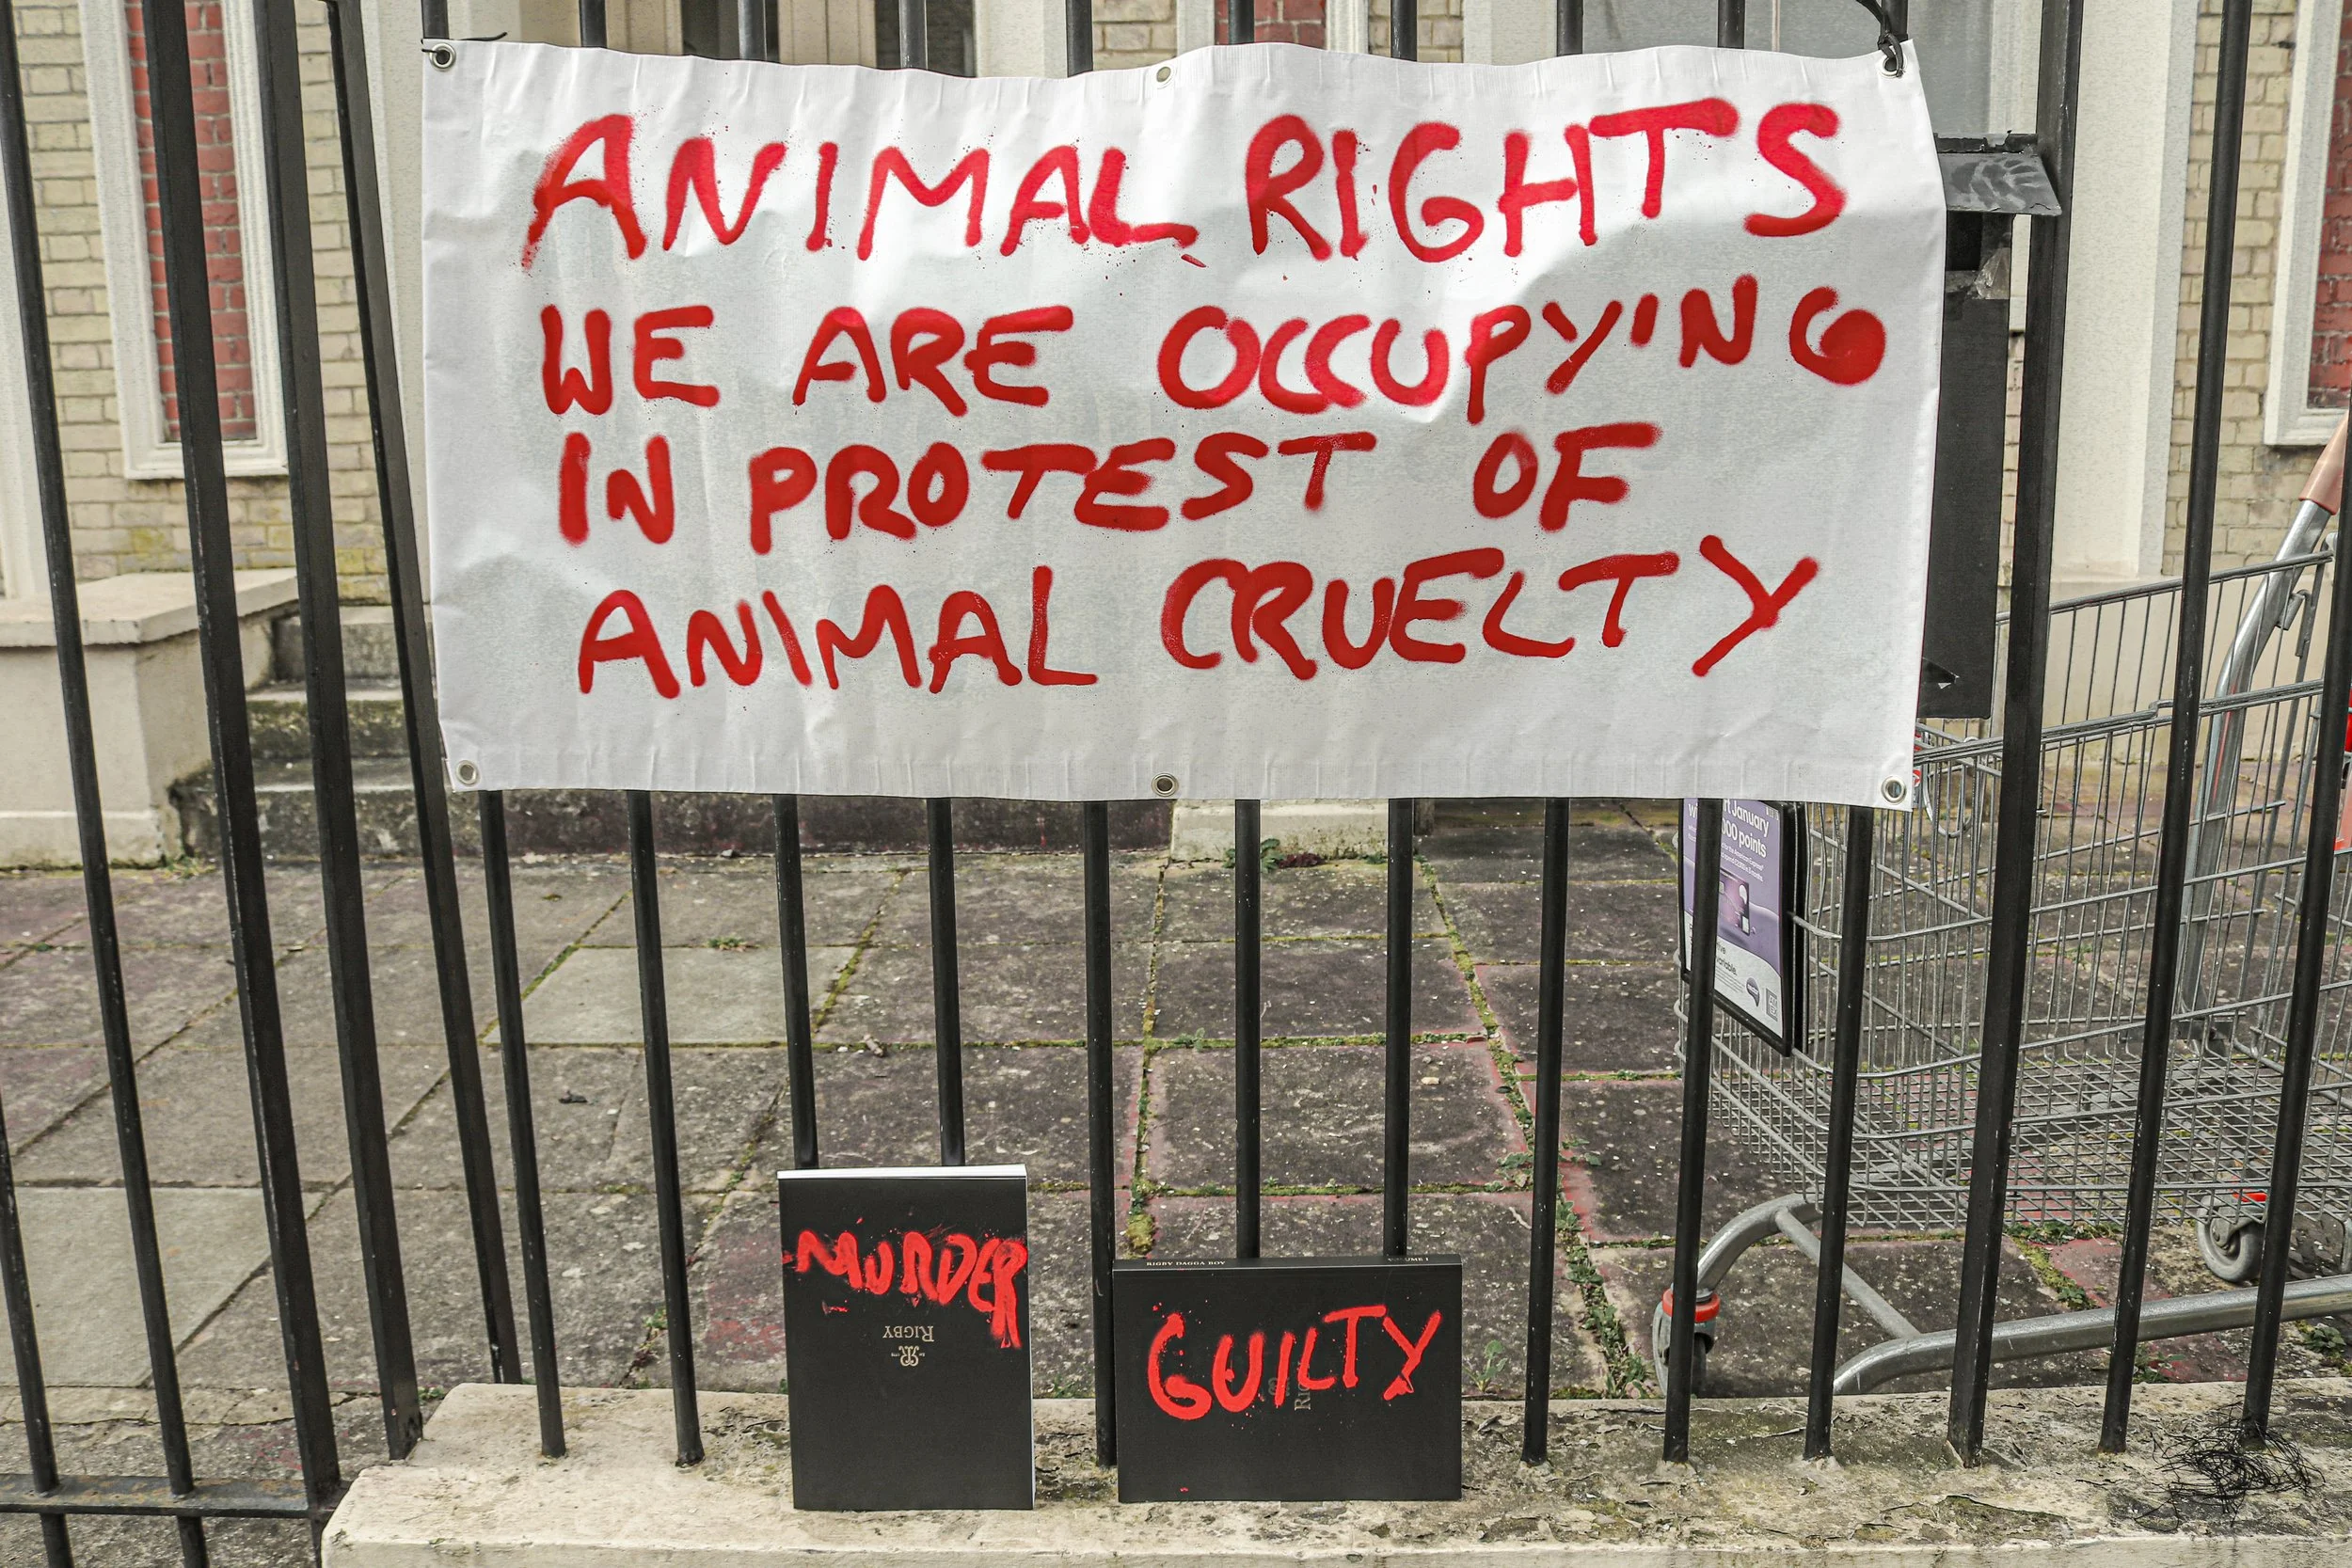 ANIMAL RIGHTS
WE ARE OCCUPY'NG
IN PROTEST OF
ANIMAL CRUELTY
January
points
MURDER
RIGBY
RIGBY DAGGA BOY
GUILTY